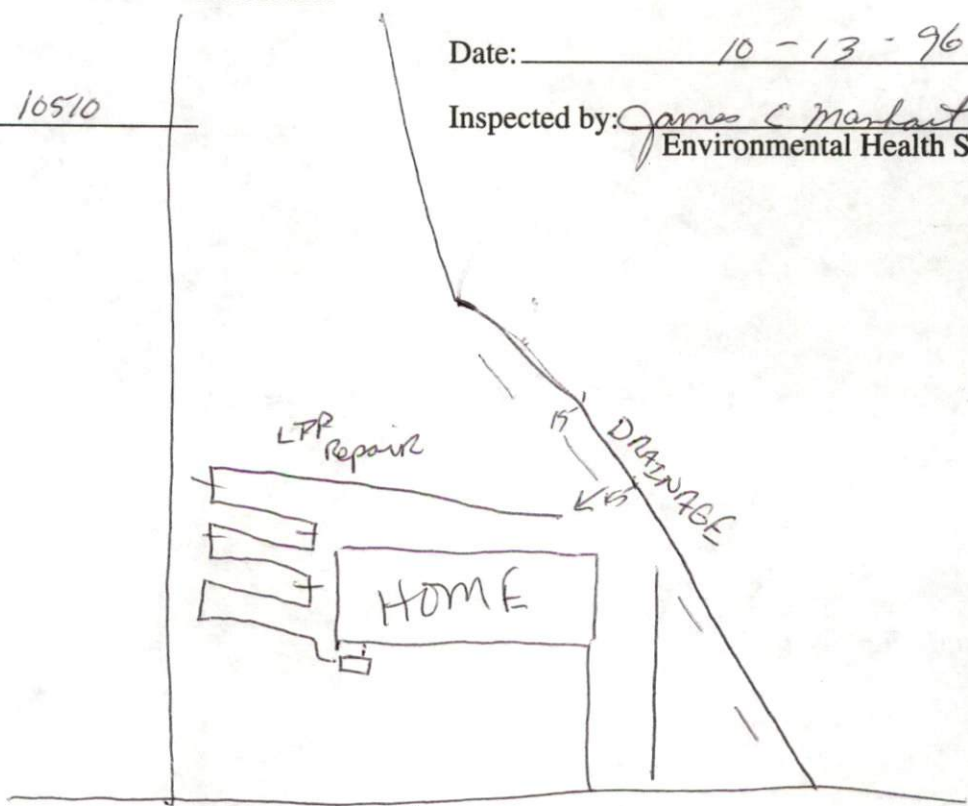 Date: 10 - 13 - 96
10510
Inspected by: James C Manhart
Environmental Health S
LPP Repair
15'
DRAINAGE
15'
HOME